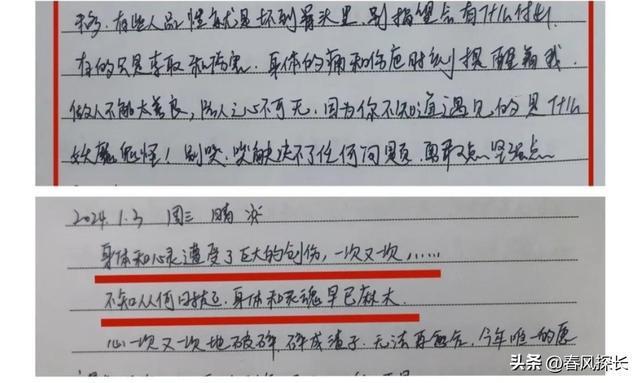 移. 有些人品性就是坏到骨头里, 别指望会有什么付出
有的只是索取和伤害. 身体的痛和伤疤时刻提醒着我.
做人不能太善良, 防人之心不可无. 因为你不知道遇见的是什么
妖魔鬼怪! 别哭, 哭解决不了任何问题, 勇敢点、坚强点
2024.1.3 周三 晴
身体和心灵遭受了巨大的创伤, 一次又一次, ......
不知从何日起, 身体和灵魂早已麻木.
心一次又一次地破碎, 碎成渣子. 无法再愈合, 今年唯一的愿
头条 @春风探长